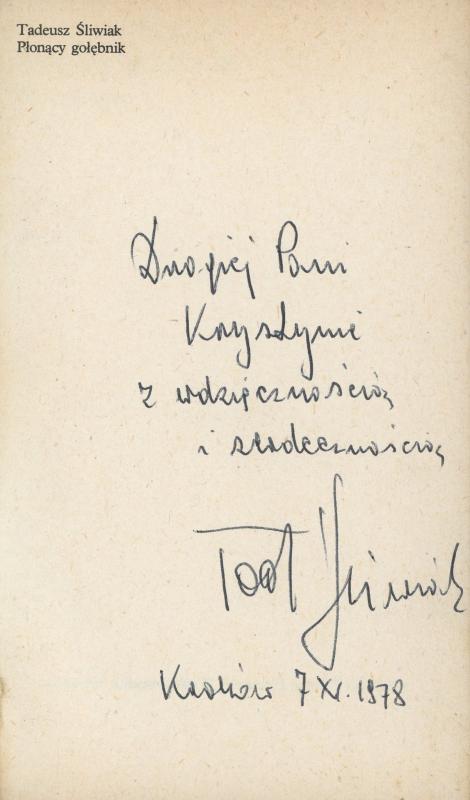 Tadeusz Śliwiak
Płonący gołębnik
Drogiej Pani
Krystynie
z wdzięcznością
i serdecznością
Tad Śliwiak
Kraków 7 XI. 1978